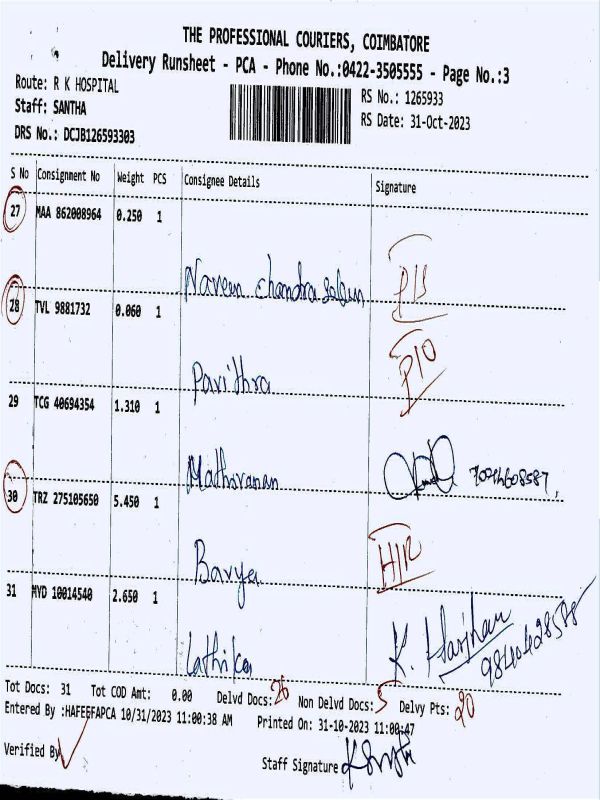 THE PROFESSIONAL COURIERS, COIMBATORE
Delivery Runsheet - PCA - Phone No.:0422-3505555 - Page No.:3
Route: R K HOSPITAL
RS No.: 1265933
Staff: SANTHA
RS Date: 31-Oct-2023
DRS No.: DCJB126593303
S No Consignment No Weight PCS Consignee Details Signature
27 MAA 862008964 0.250 1
Naveen chandra
28 TVL 9881732 0.060 1
Pavithra
29 TCG 40694354 1.310 1
Mathivanan
30 TRZ 275105650 5.450 1
Bavya
31 MYD 10014540 2.650 1
Lathika K.
Tot Docs: 31 Tot COD Amt: 0.00 Delvd Docs: 26 Non Delvd Docs: 5 Delvy Pts: 20
Entered By :HAFEEFAPCA 10/31/2023 11:00:38 AM Printed On: 31-10-2023 11:00:47
Verified By
Staff Signature